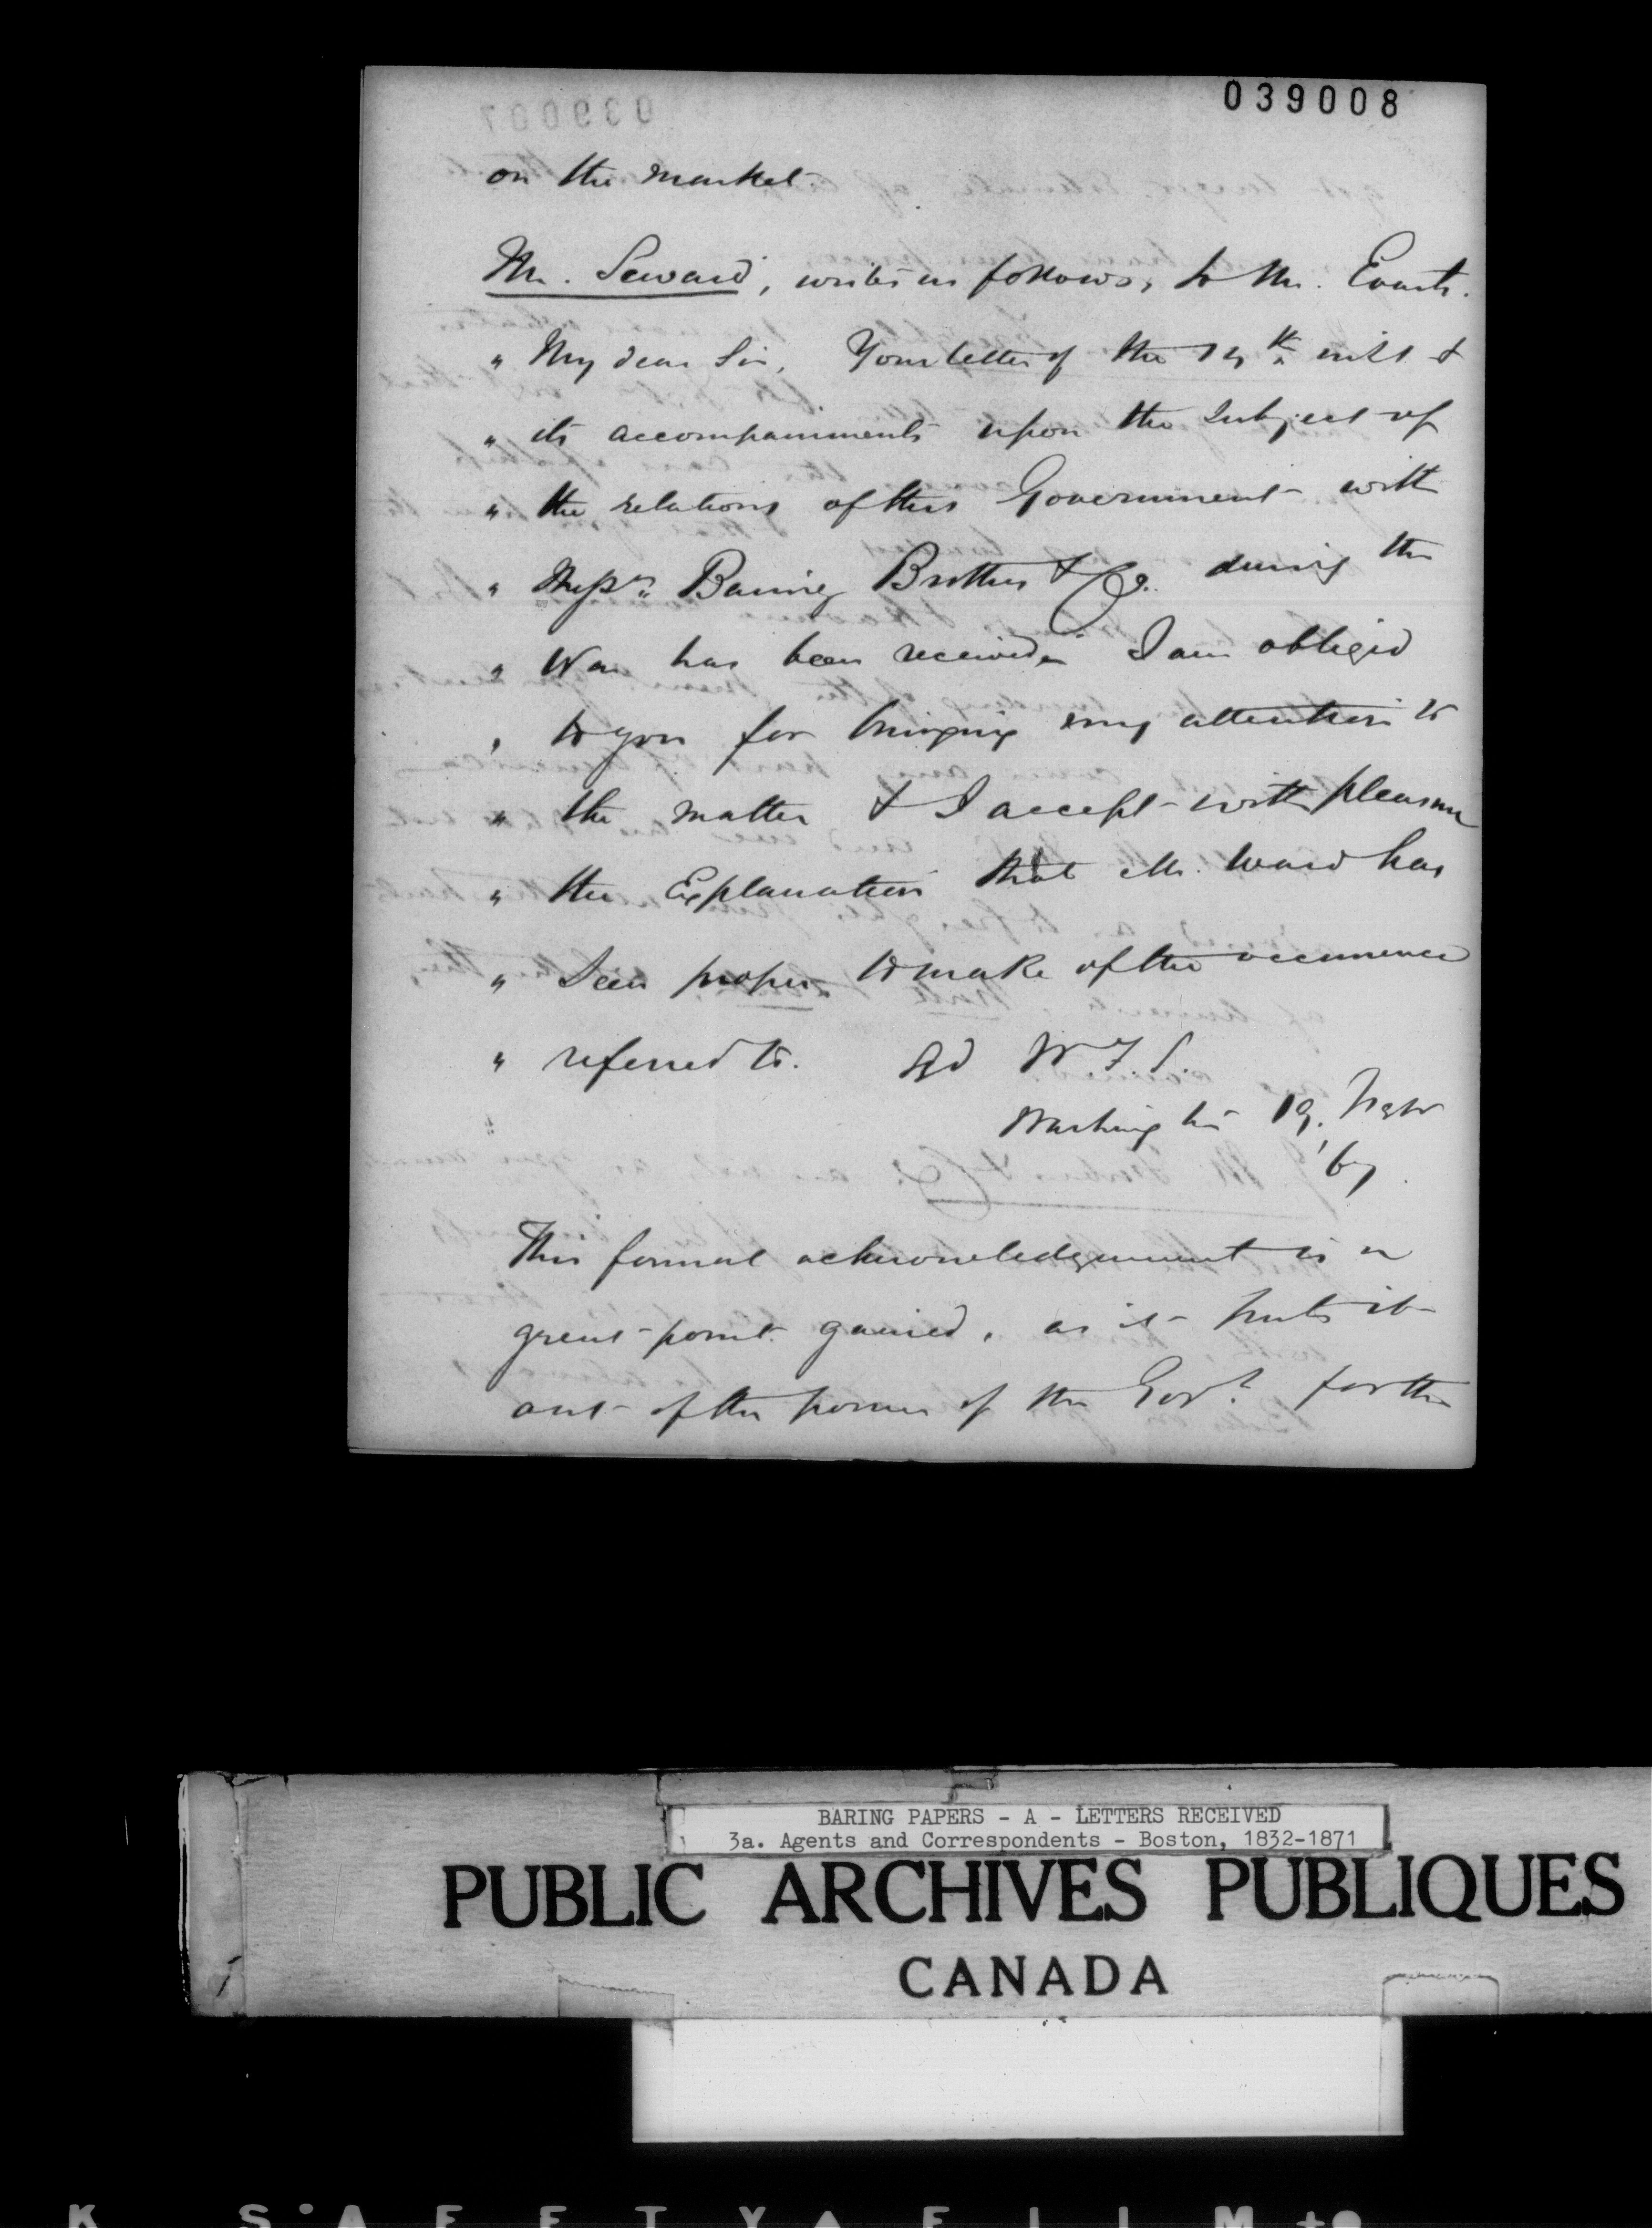 039008
on the market.
Mr. Seward, writes as follows, to Mr. Evarts.
" My dear Sir, Your letter of the 14th inst &
" its accompaniments upon the subject of
" the relations of this Government with
" Messrs. Baring Brothers & Co. during the
" War has been received. I am obliged
" to you for bringing my attention to
" the matter & I accept with pleasure
" the Explanation that Mr. Ward has
" Seen proper to make of the occurrence
" referred to. Sgd W. H. S.
Washington 19,
'67
This formal acknowledgement is a
great point gained, as it puts it
out of the power of the Govt. for the
BARING PAPERS - A - LETTERS RECEIVED
3a. Agents and Correspondents - Boston, 1832-1871
PUBLIC ARCHIVES PUBLIQUES
CANADA